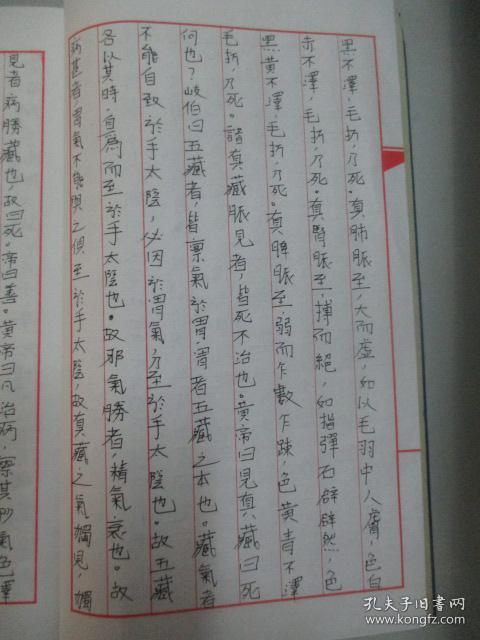 黑不澤，毛折，乃死。真肺脈至，大而虛，如以毛羽中人膚，色白
赤不澤，毛折，乃死。真腎脈至，搏而絕，如指彈石辟辟然，色
黑黃不澤，毛折，乃死。真脾脈至，弱而乍數乍疎，色黃青不澤
毛折，乃死。諸真藏脈見者，皆死不治也。黄帝曰見真藏曰死
何也？岐伯曰五藏者，皆禀氣於胃胃者五藏之本也。藏氣者
不能自致於手太陰，必因於胃氣，乃至於手太陰也。故五藏
各以其時，自爲而至於手太陰也。故邪氣勝者，精氣衰也。故
病甚者，胃氣不能與之俱至於手太陰，故真藏之氣獨見，獨
見者病勝藏也，故曰死。帝曰善。黄帝曰凡治病，察其形氣色澤
孔夫子旧书网
www.kongfz.com